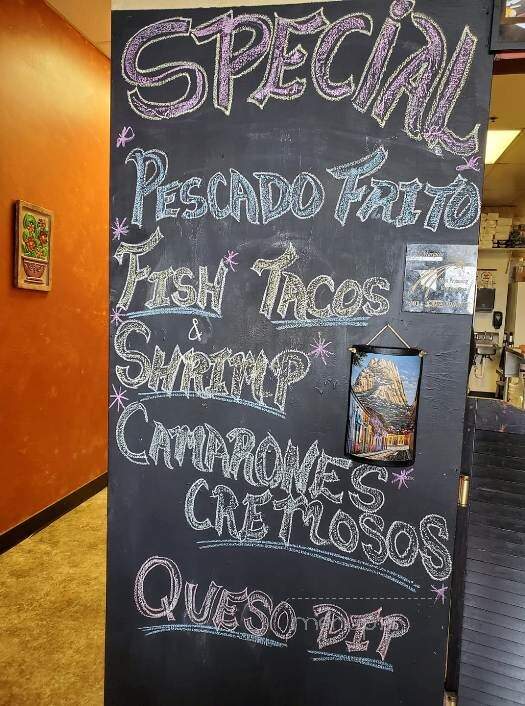 SPECIAL
PESCADO FRITO
FISH TACOS
&
SHRIMP
CAMARONES
CREMOSOS
QUESO DIP